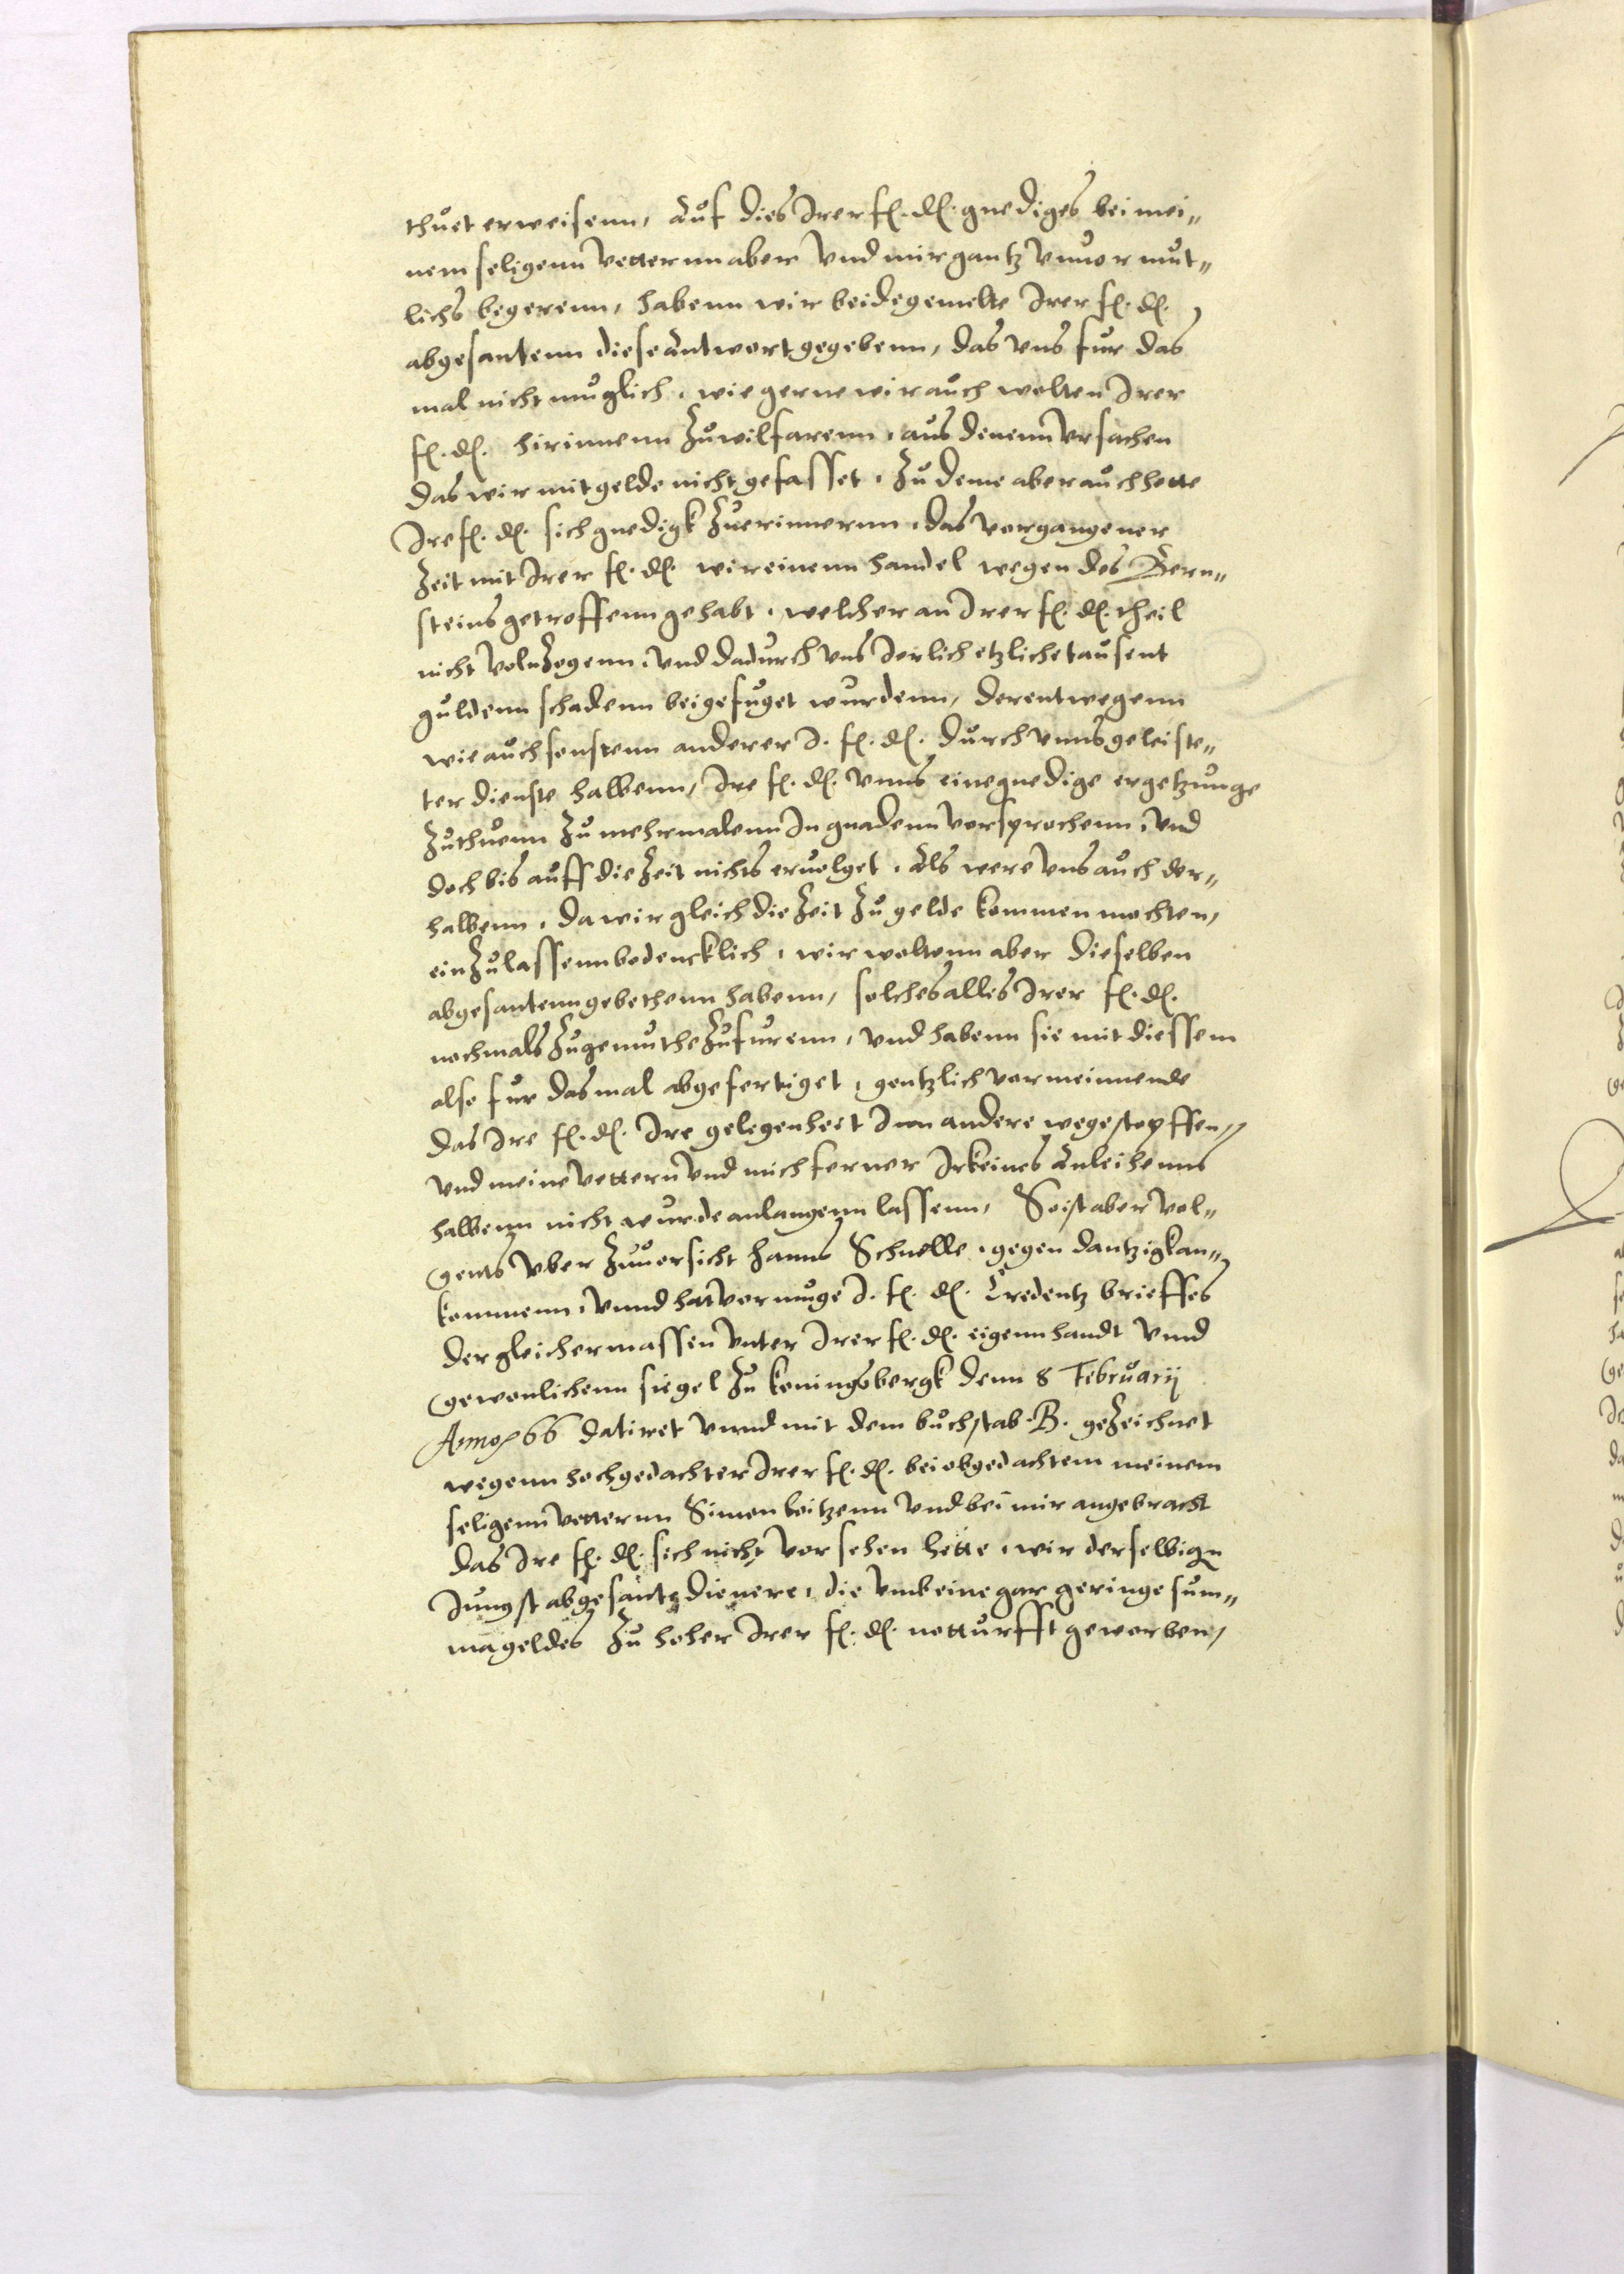 thuet erweisenn, Auf dies Irer f. d. gnediges bei mei„
nem seligenn Vetternn aber Vnd mir gantz Vnuor mut„
lichs begerenn, habenn wir beide gemelte Irer f. d.
abgesantenn diese Antwort gegebenn, das Vns fur das
mal nicht muglich, wie gerne wir auch wolten Irer
f. d. hirinnenn Zuwilfarenn, aus denenn Vrsachen
das wir mit gelde nicht gefasset, Zu deme aber auch hette
Ire f. d. sich gnedigk Zuerinnernn, das vorgangener
Zeit mit Irer f. d. wir einenn handel wegen des Bern„
steins getroffenn gehabt, welcher an Irer f. d. theil
nicht Volnzogenn, Vnd dadurch Vns Jerlich etzliche tausent
guldenn schadenn beigefuget wurdenn, derentwegenn
wie auch sonstenn anderer I. f. d. durch Vnns geleiste„
ter dienste halbenn, Ire f. d. Vnns eine gnedige ergetzunge
Zuthuenn Zu mehrmalenn In gnadenn Vorsprochenn, Vnd
doch bis auff die Zeit nichts eruolget, Als were Vns auch der„
halbenn, da wir gleich die Zeit Zu gelde kommen mochten,
ein Zulassenn bedencklich, wir woltenn aber dieselben
abgesantenn gebethenn habenn, solches alles Irer f. d.
nochmals Zugemuthe Zufurenn, Vnd habenn sie mit diessem
also fur das mal abgefertiget, gentzlich Vormeinnende
das Ire f. d. Ire gelegenheit Inn andere wege stopffen,
Vnd meine Vettern Vnd mich ferner Irkeines Anleihenns
halbenn nicht wurde anlangenn lassenn, So ist aber Vol„
gents Vber Zuuorsicht Hanns Schnelle, gegen dantzigk an„
kommenn, Vnnd hat Vormuge I. f. d. Credentz brieffes
der gleichermassen Vnter Irer f. d. eigenn handt Vnnd
gewonlichenn siegel Zu koningsbergk denn 8 Februarij
Anno 66 datiret Vnnd mit dem buchstab .B. geZeichnet
wegenn hochgedachter Irer f. d. bei obgedachtem meinem
seligenn Vetternn Simon Loitzenn Vnd bei mir angebracht
das Ire f. d. sich nicht Vorsehen hette, wir derselbign
Jungst abgesante dienere, die Vmb eine gar geringe sum„
ma geldes Zu hoher Irer f. d. notturfft geworben,